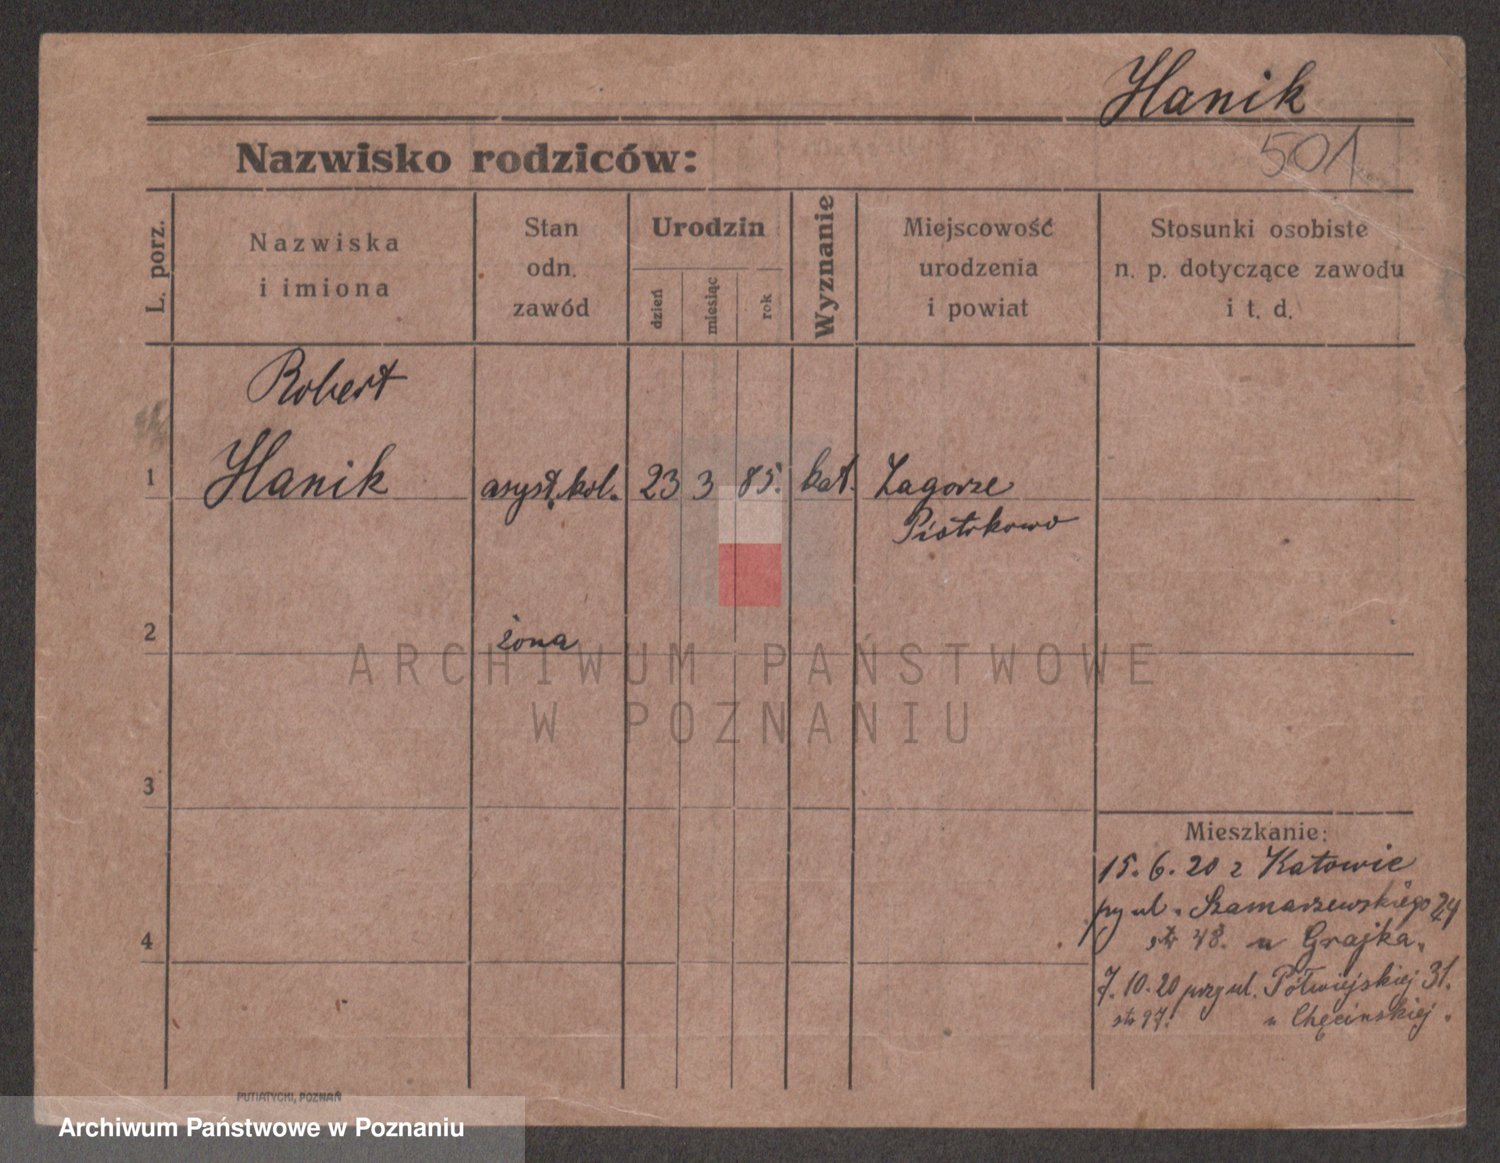 Hanik
501
Nazwisko rodziców:
L. porz.
Nazwiska
i imiona
Stan
odn.
zawód
Urodzin
dzień
miesiąc
rok
Wyznanie
Miejscowość
urodzenia
i powiat
Stosunki osobiste
n. p. dotyczące zawodu
i t. d.
Robert
1 Hanik asyst. kol. 23 3 85. kat. Zagorze
Piotrkowo
2 żona
ARCHIWUM PAŃSTWOWE
W POZNANIU
3
Mieszkanie:
15. 6. 20 z Katowic
py ul. Szamarzewskiego 24
str 48. u Grajka.
4
7. 10. 20 przy ul. Półwiejskiej 31.
str 97. u Chęcinskiej.
PUTIATYCKI, POZNAŃ
Archiwum Państwowe w Poznaniu